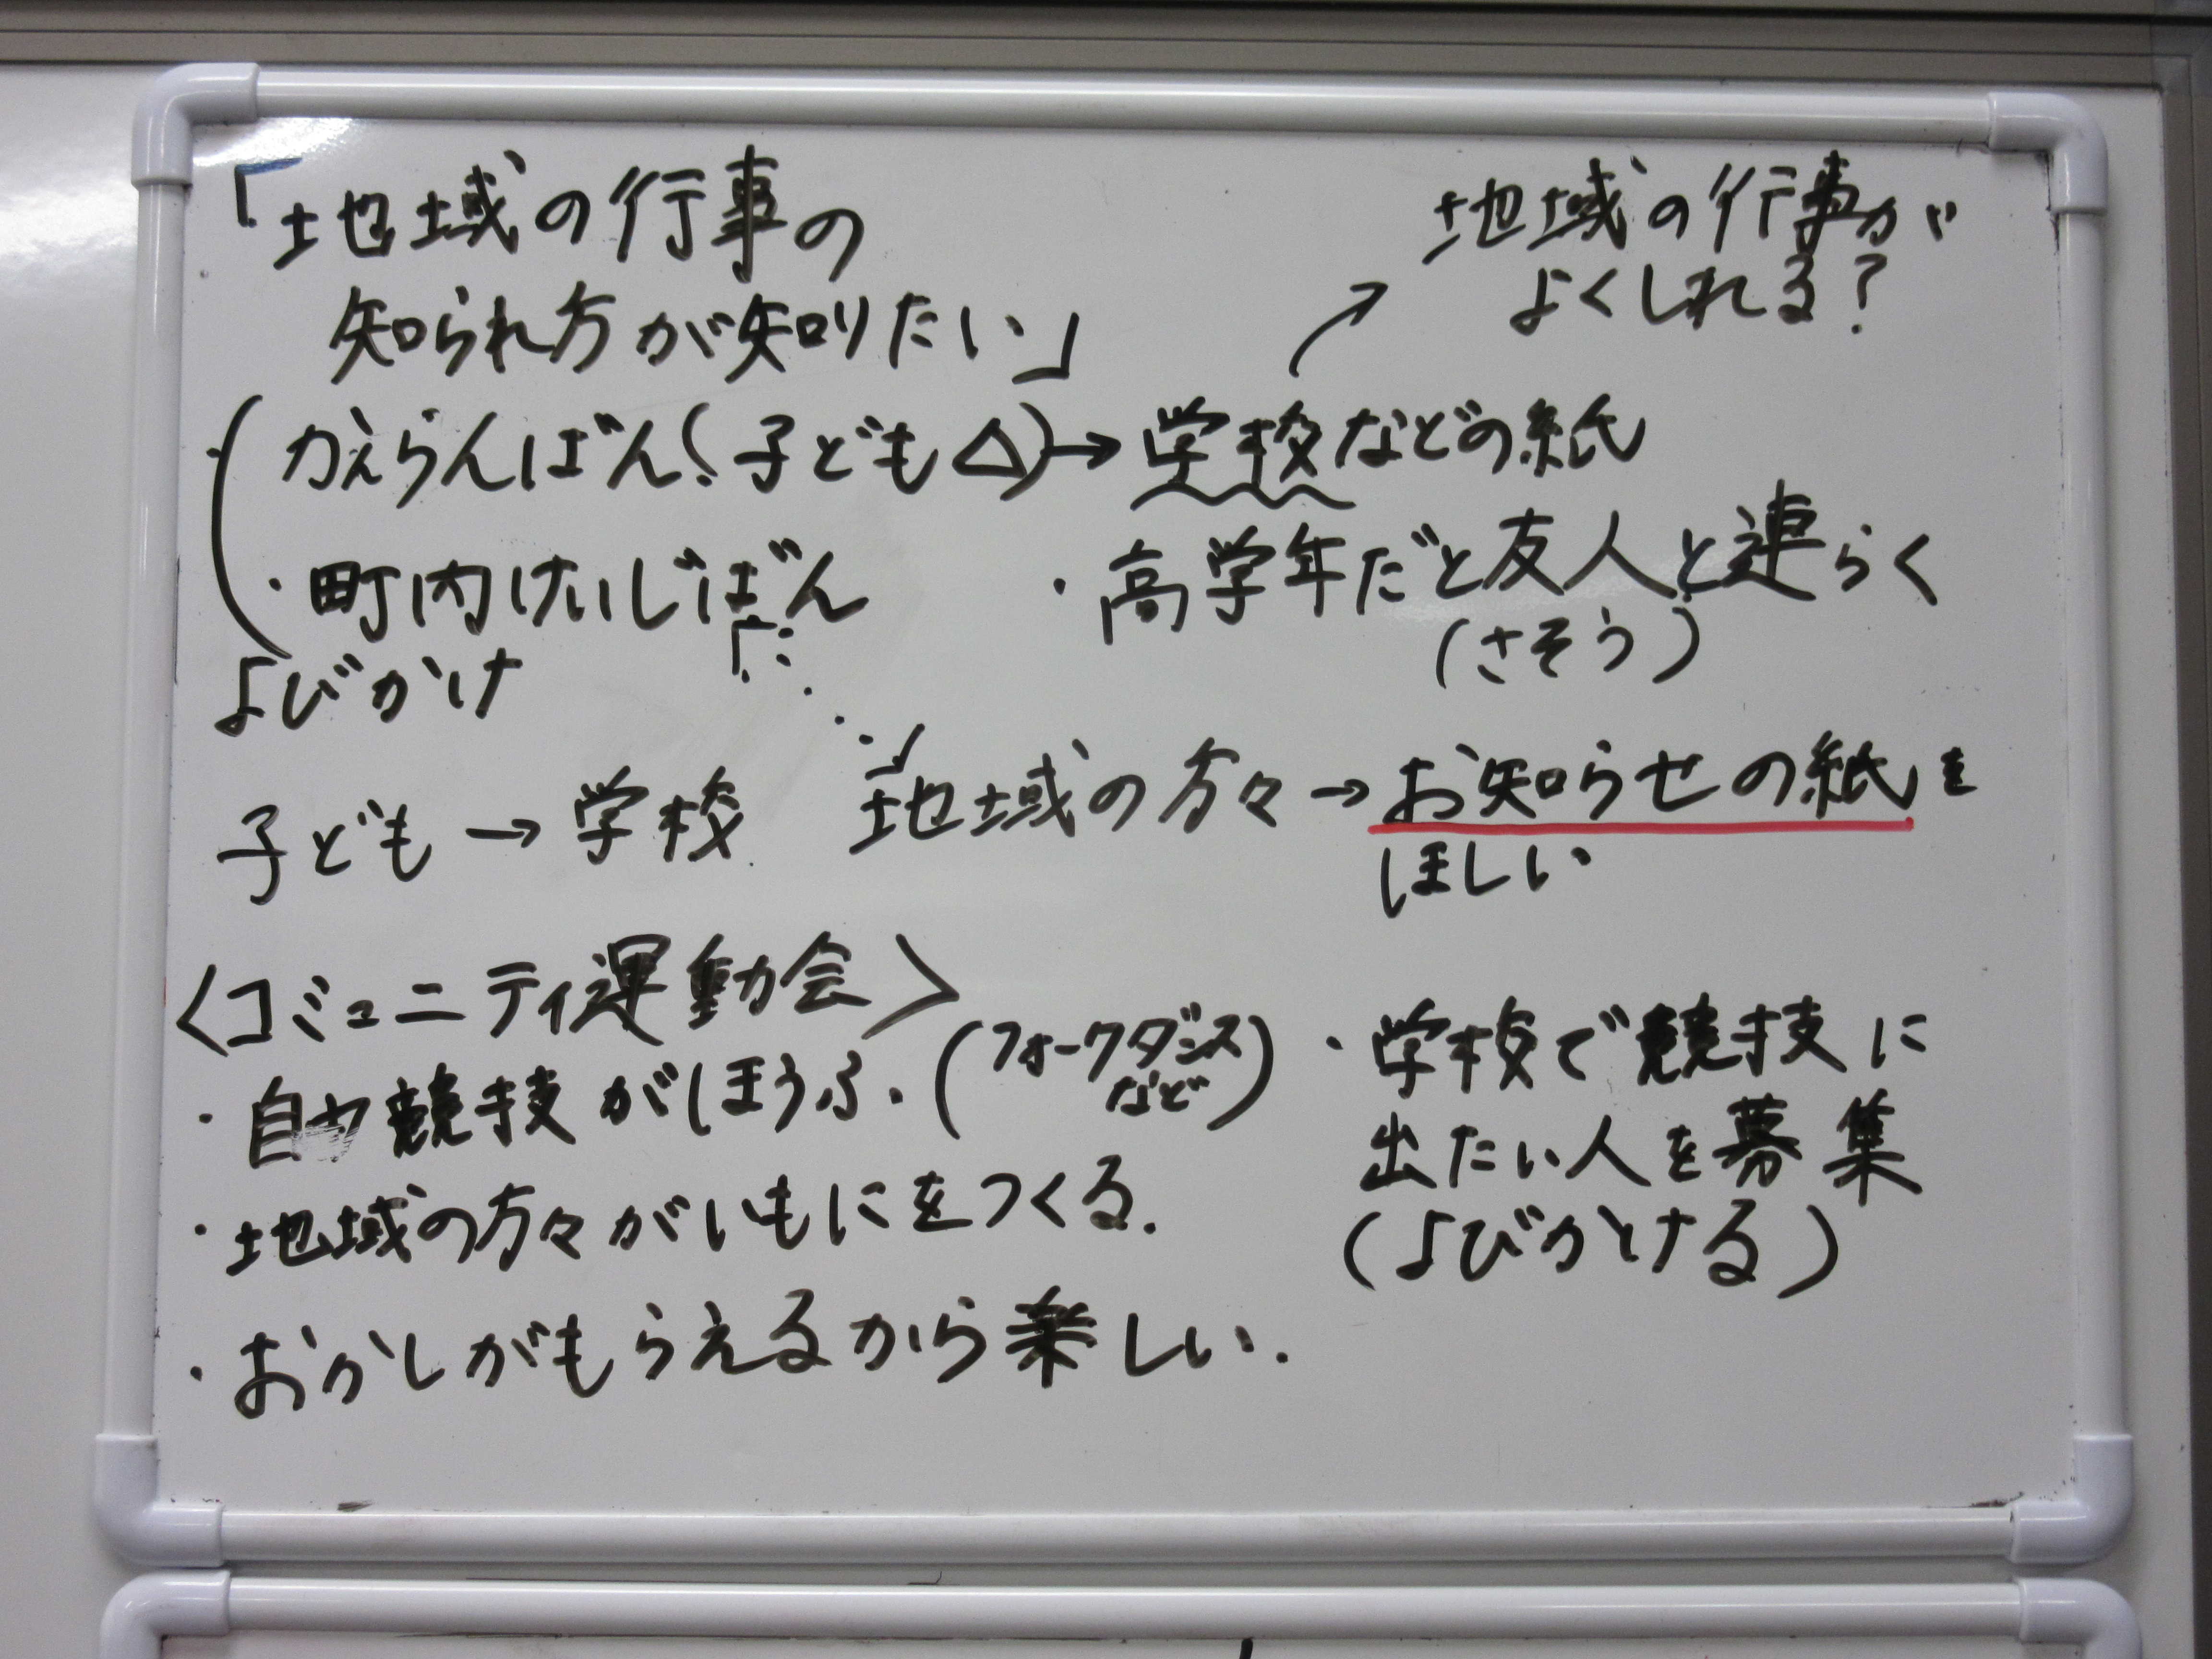 「地域の行事の
知られ方が知りたい」
地域の行事が
よくしれる?
かえらんばん(子ども△)→学校などの紙
・町内けいじばん
・高学年だと友人と連らく
(さそう)
よびかけ
子ども→学校
地域の方々→お知らせの紙を
ほしい
〈コミュニティ運動会〉
・自由競技がほうふ.(フォークダンス
など)
・地域の方々がいもにをつくる.
・おかしがもらえるから楽しい.
・学校で競技に
出たい人を募集
(よびかける)